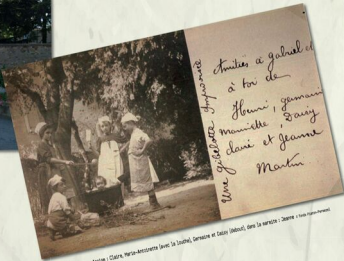 Une gibelotte improvisée
Amitiés a gabriel et
à toi de
Henri, germain
Mariette, Daisy
claire et jeanne
Martin
Claire, Marie-Antoinette (avec la louche), Germaine et Daisy (debout) dans la marmite : Jeanne